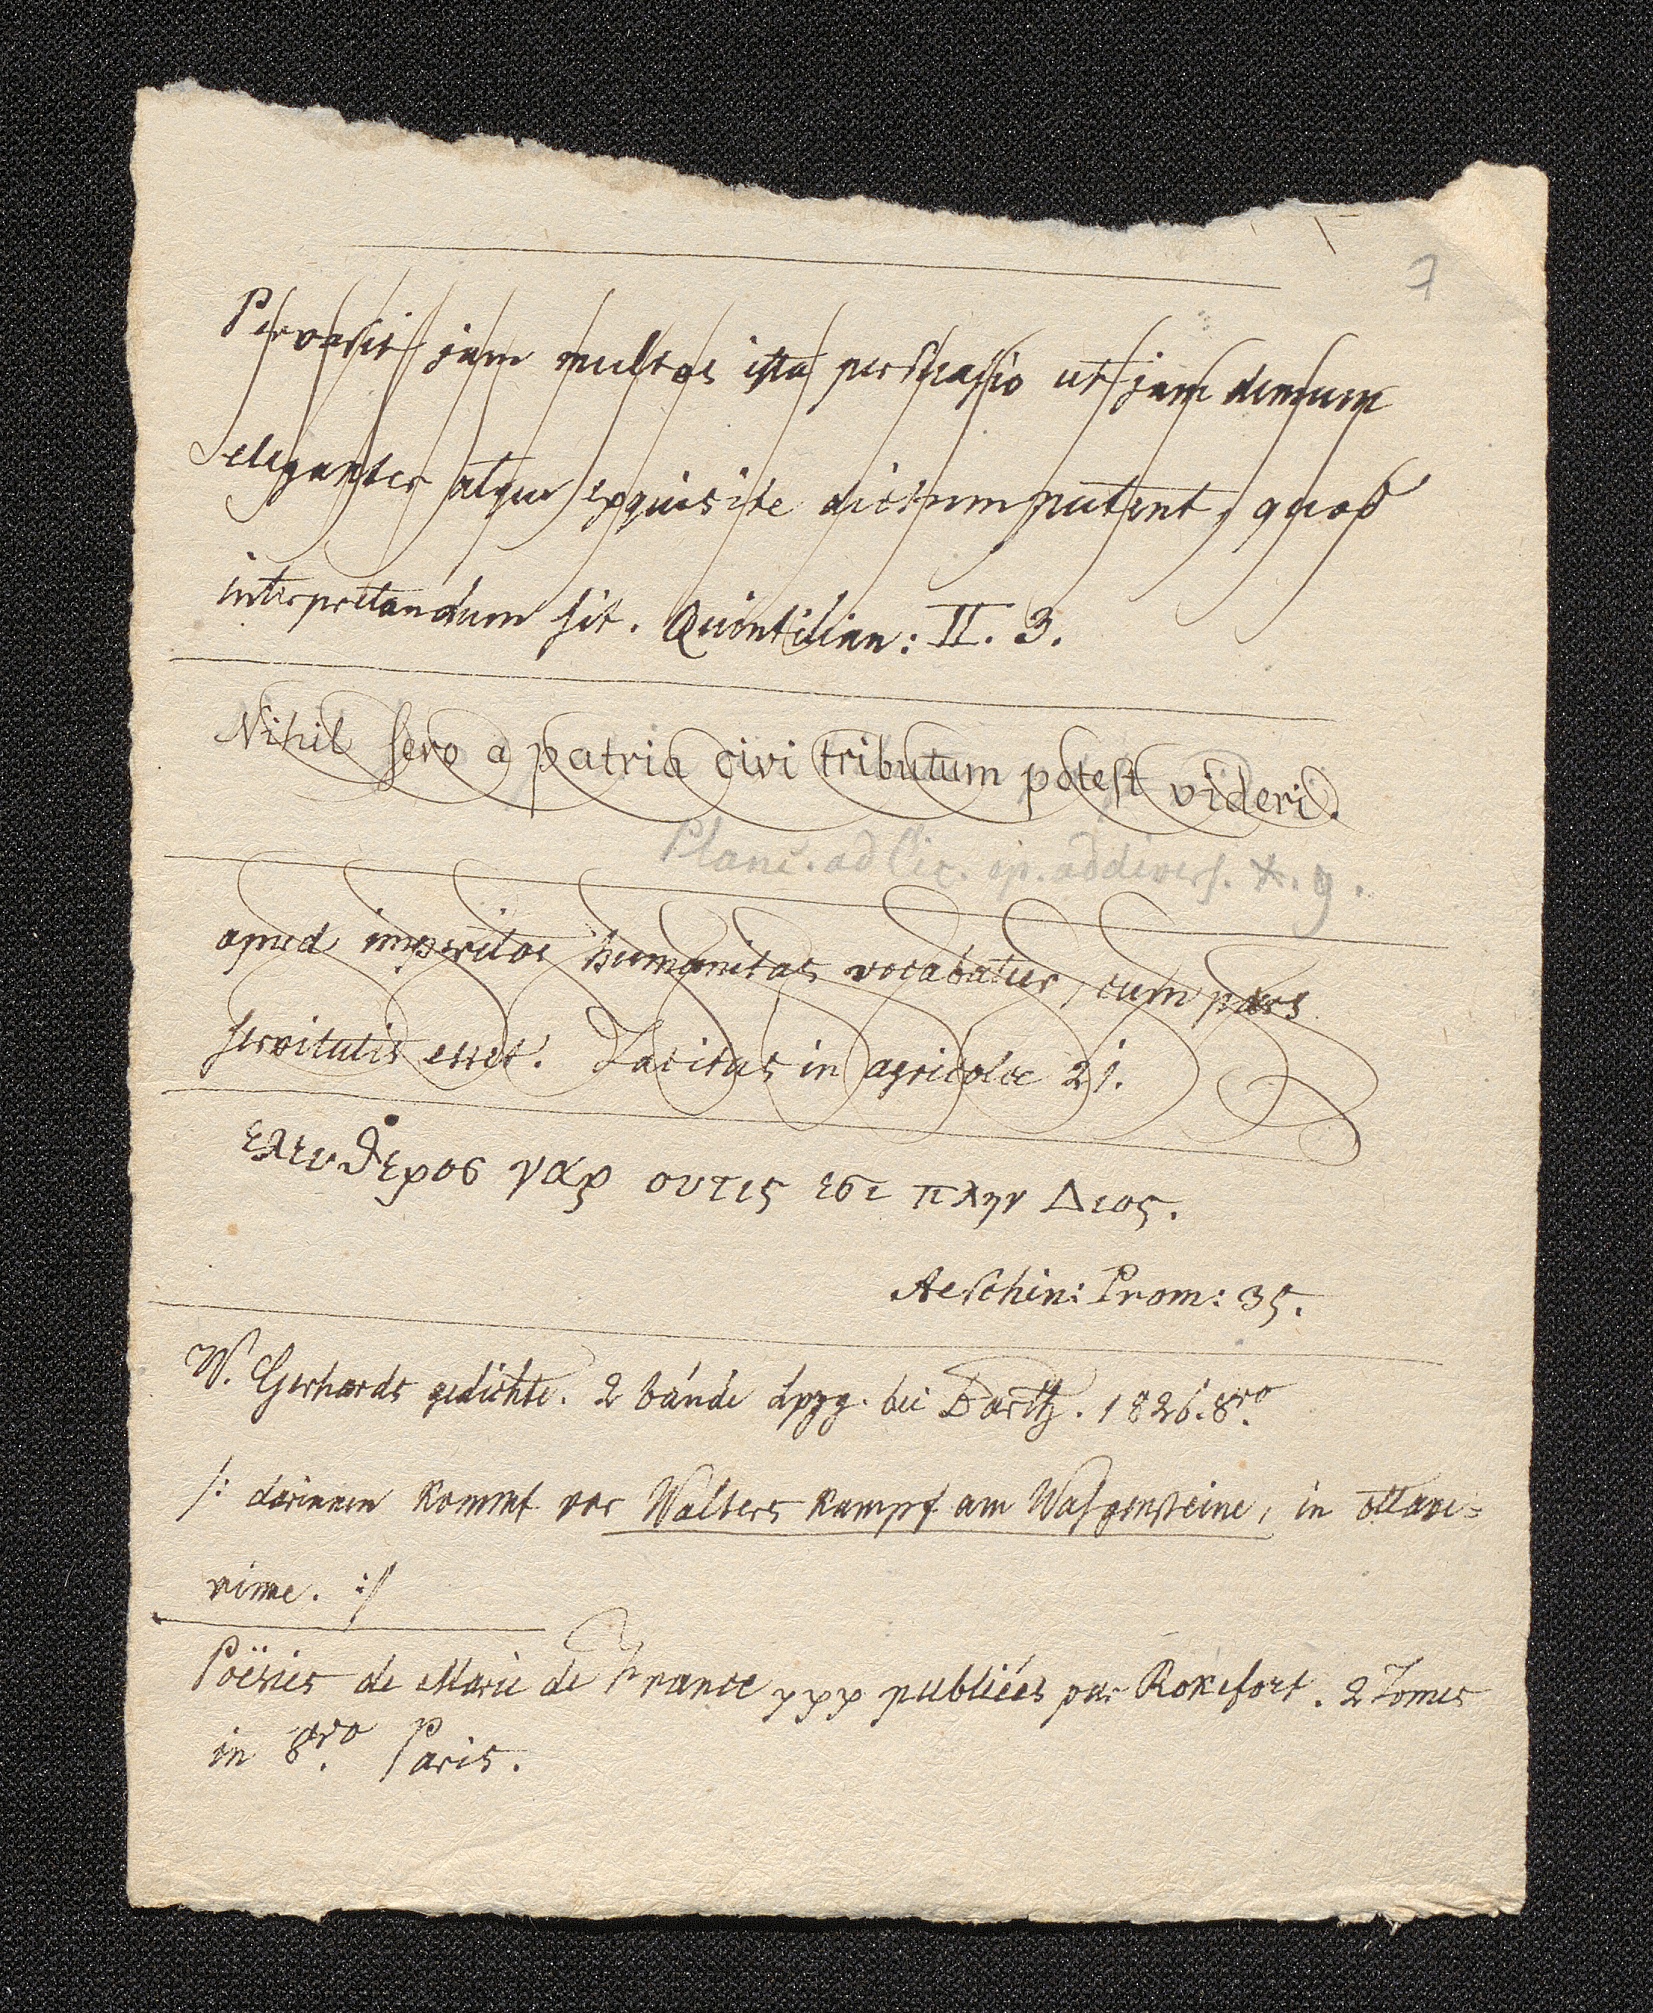 7
Pervasit jam multos ista persuasio ut jam demum
eleganter atque exquisite dictum putent, quod
interpretandum sit. Quintilian: II. 3.
Nihil sero a patria civi tributum potest videri.
Planc. ad Cic. ep. ad divers. X. 9.
apud imperitos humanitas vocabatur, cum pars
servitutis esset. Tacitus in agricola 21.
ελευθερος γαρ ουτις εσι πλην Διος.
Aeschin: Prom: 35.
W. Gerhards gedichte. 2 bände Lpzg. bei Barth. 1826. 8ʳᵒ.
/: darinnen kommt vor Walters kampf am Wasgensteine, in ottave=
rime. :/
Poësies de Marie de France xxx publiées par Rokefort. 2 Tomes
in 8ᵛᵒ. Paris.